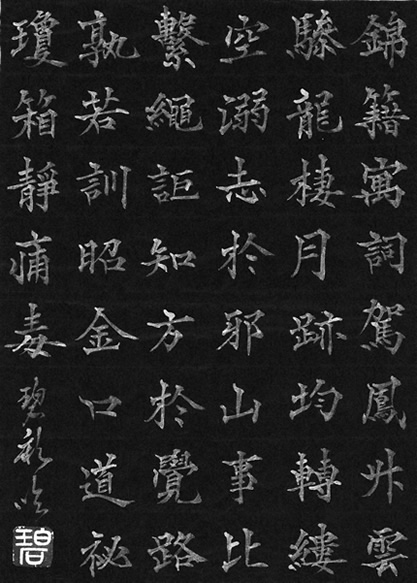 錦籍寓詞駕鳳升雲
驂龍棲月跡均轉縷
空溺志於邪山事比
繫繩詎知方於覺路
孰若訓昭金口道祕
瓊箱靜痛毒
碧
碧